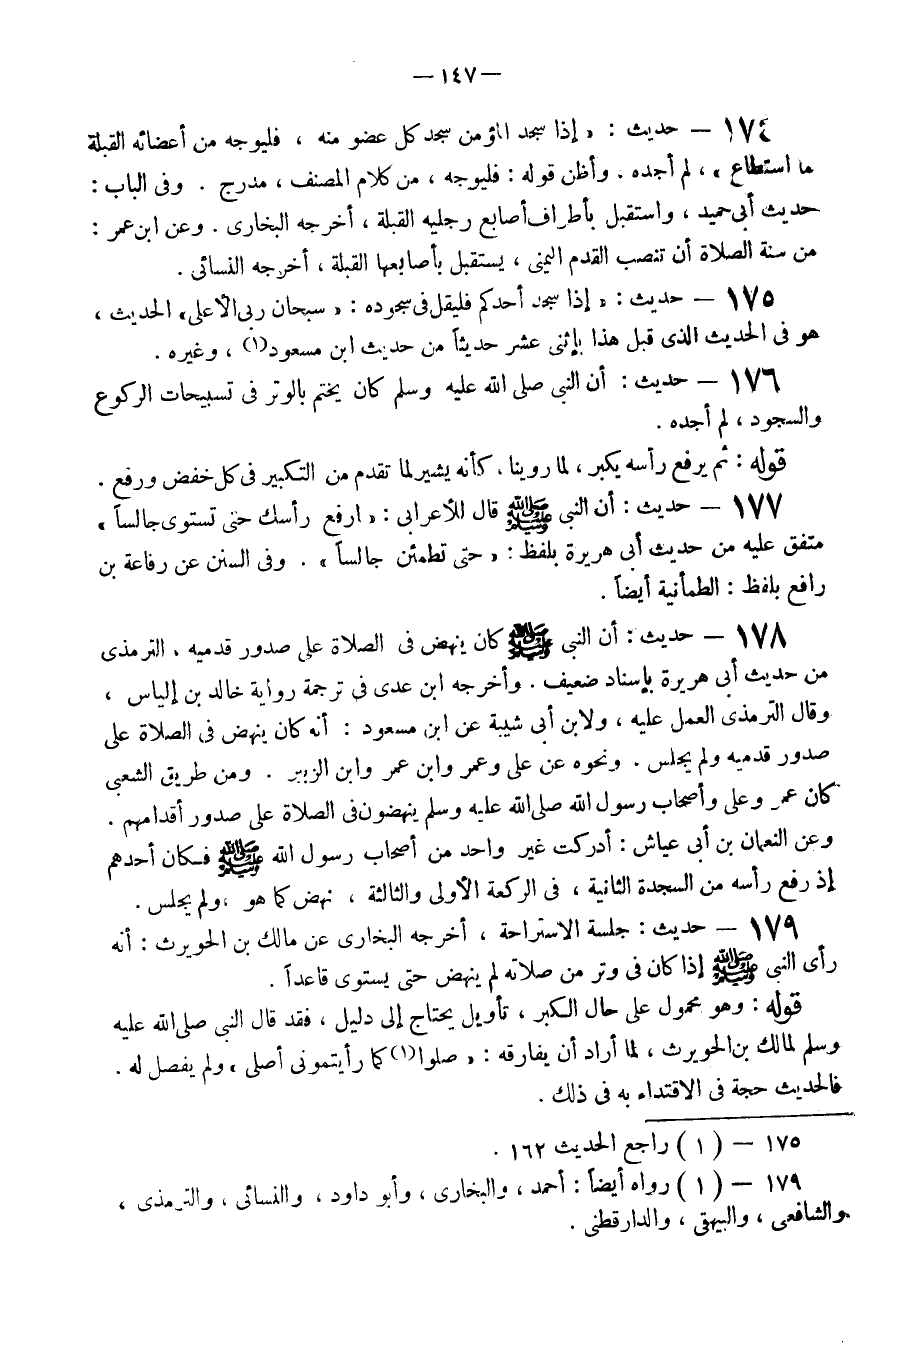 — ١٤٧ —
١٧٤ — حديث : « إذا سجد المؤمن سجد كل عضو منه ، فليوجه من أعضائه القبلة
ما استطاع » ، لم أجده . وأظن قوله : فليوجه ، من كلام المصنف ، مدرج . وفى الباب :
حديث أبى حميد ، واستقبل بأطراف أصابع رجليه القبلة ، أخرجه البخارى . وعن ابن عمر :
من سنة الصلاة أن تنصب القدم اليمنى ، يستقبل بأصابعها القبلة ، أخرجه النسائى .
١٧٥ — حديث : « إذا سجد أحدكم فليقل فى سجوده : « سبحان ربى الأعلى» الحديث ،
هو فى الحديث الذى قبل هذا بإثنى عشر حديثاً من حديث ابن مسعود(١) ، وغيره .
١٧٦ — حديث : أن النبى صلى الله عليه وسلم كان يختم بالوتر فى تسبيحات الركوع
والسجود ، لم أجده .
قوله : ثم يرفع رأسه يكبر ، لما روينا . كأنه يشير لما تقدم من التكبير فى كل خفض ورفع .
١٧٧ — حديث : أن النبى ﷺ قال للأعرابى : « ارفع رأسك حتى تستوى جالساً »
متفق عليه من حديث أبى هريرة بلفظ : « حتى تطمئن جالساً » . وفى السنن عن رفاعة بن
رافع بلفظ : الطمأنية أيضاً .
١٧٨ — حديث : أن النبى ﷺ كان ينهض فى الصلاة على صدور قدميه ، الترمذى
من حديث أبى هريرة بإسناد ضعيف . وأخرجه ابن عدى فى ترجمة رواية خالد بن إلياس ،
وقال الترمذى العمل عليه ، ولابن أبى شيبة عن ابن مسعود : أنه كان ينهض فى الصلاة على
صدور قدميه ولم يجلس . ونحوه عن على وعمر وابن عمر وابن الزبير . ومن طريق الشعبى
كان عمر وعلى وأصحاب رسول الله صلى الله عليه وسلم ينهضون فى الصلاة على صدور أقدامهم .
وعن النعمان بن أبى عياش : أدركت غير واحد من أصحاب رسول الله ﷺ فكان أحدهم
إذ رفع رأسه من السجدة الثانية ، فى الركعة الأولى والثالثة ، نهض كما هو ،ولم يجلس .
١٧٩ — حديث : جلسة الاستراحة ، أخرجه البخارى عن مالك بن الحويرث : أنه
رأى النبى ﷺ إذا كان فى وتر من صلاته لم ينهض حتى يستوى قاعداً .
قوله : وهو محمول على حال الكبر ، تأويل يحتاج إلى دليل ، فقد قال النبى صلى الله عليه
وسلم لمالك بن الحويرث ، لما أراد أن يفارقه : « صلوا(١) كما رأيتمونى أصلى » ولم يفصل له .
فالحديث حجة فى الاقتداء به فى ذلك .
١٧٥ — ( ١ ) راجع الحديث ١٦٢ .
١٧٩ — ( ١ ) رواه أيضاً : أحمد ، والبخارى ، وأبو داود ، والنسائى ، والترمذى ،
والشافعى ، والبيهقى ، والدارقطنى .